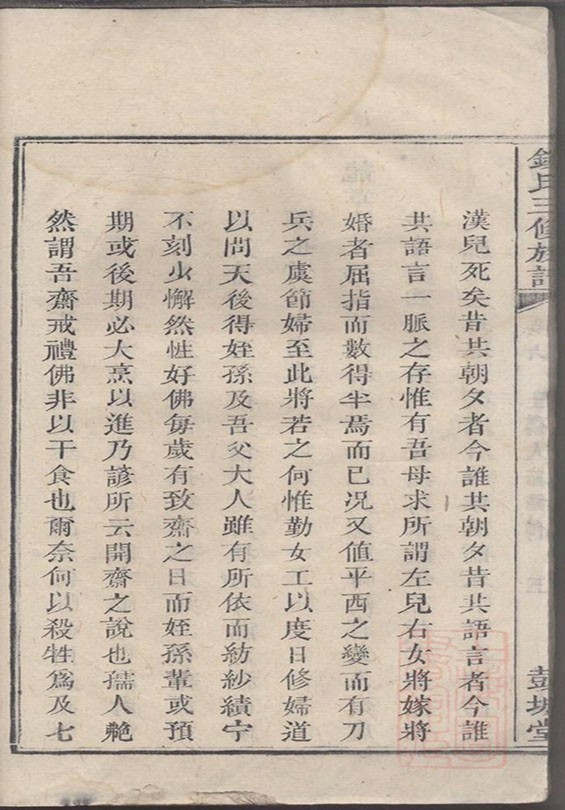 錢氏三修族譜
彭城堂
漢兒死矣昔共朝夕者今誰共朝夕昔共語言者今誰
共語言一脈之存惟有吾母求所謂左兒右女將嫁將
婚者屈指而數得半焉而已况又值平西之變而有刀
兵之虞節婦至此將若之何惟勤女工以度日修婦道
以問天後得姪孫及吾父大人雖有所依而紡紗績宁
不刻少懈然性好佛每歲有致齋之日而姪孫輩或預
期或後期必大烹以進乃諺所云開齋之說也孺人艴
然謂吾齋戒禮佛非以干食也爾奈何以殺牲爲及七